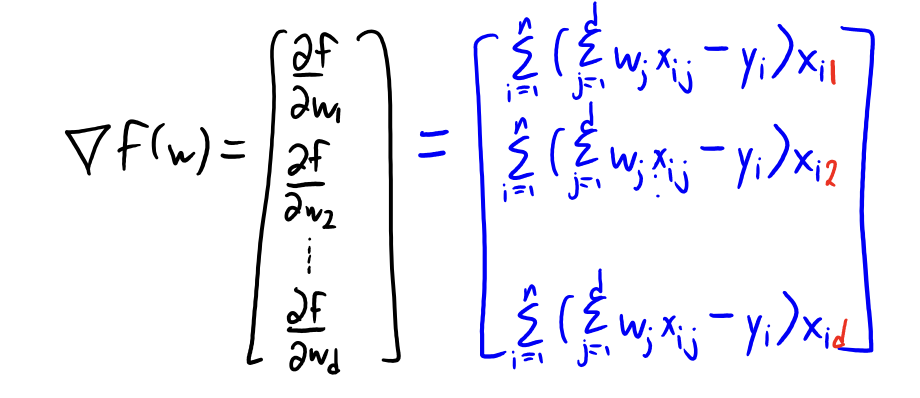 ∇f(w) = [∂f/∂w₁ ∂f/∂w₂ ⋮ ∂f/∂w_d] = [∑ᵢ₌₁ⁿ (∑ⱼ₌₁ᵈ wⱼxᵢⱼ − yᵢ)xᵢ₁
∑ᵢ₌₁ⁿ (∑ⱼ₌₁ᵈ wⱼxᵢⱼ − yᵢ)xᵢ₂
∑ᵢ₌₁ⁿ (∑ⱼ₌₁ᵈ wⱼxᵢⱼ − yᵢ)x_id]